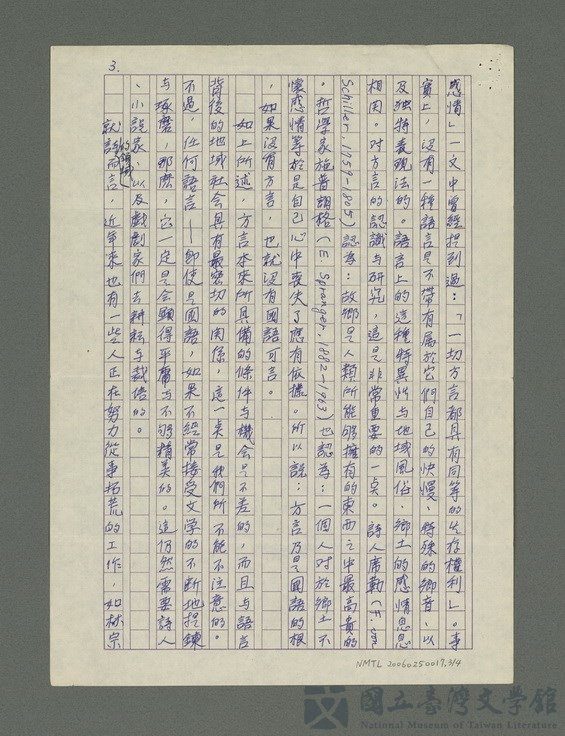 3.
感情」一文中曾經提到過：「一切方言都具有同等的生存權利」。事
實上，沒有一種語言是不帶有屬於它們自己的快慢、特殊的鄉音，以
及獨特表現法的。語言上的這種特異性與地域風俗、鄉土的感情息息
相因。對方言的認識與研究，這是非常重要的一點。詩人席勒（F. von
Schiller, 1759-1805）認為：故鄉是人類所能夠擁有的東西之中最高貴的
。哲學家施普朗格（E. Spranger, 1882-1963）也認為：一個人對於鄉土不
懷感情等於是自己心中喪失了您有依據。所以說：方言乃是國語的根
，如果沒有方言，也就沒有國語可言。
如上所述，方言本來所具備的條件與機會是不差的，而且與語言
背後的地域社會具有最密切的關係，這一点是我們所不能不注意的。
不過，任何語言——即使是國語，如果不經常接受文學的不斷地提鍊
與琢磨，那麼，它一定是會顯得平庸与不夠精美的。這仍然需要詩人
、小說家，以及戲劇家們去耕耘与栽培的。
就詩的領域而言，近年來也有一些人正在努力從事拓荒的工作，如林宗
NMTL 20060250017, 3/4
國立臺灣文學館
National Museum of Taiwan Literature